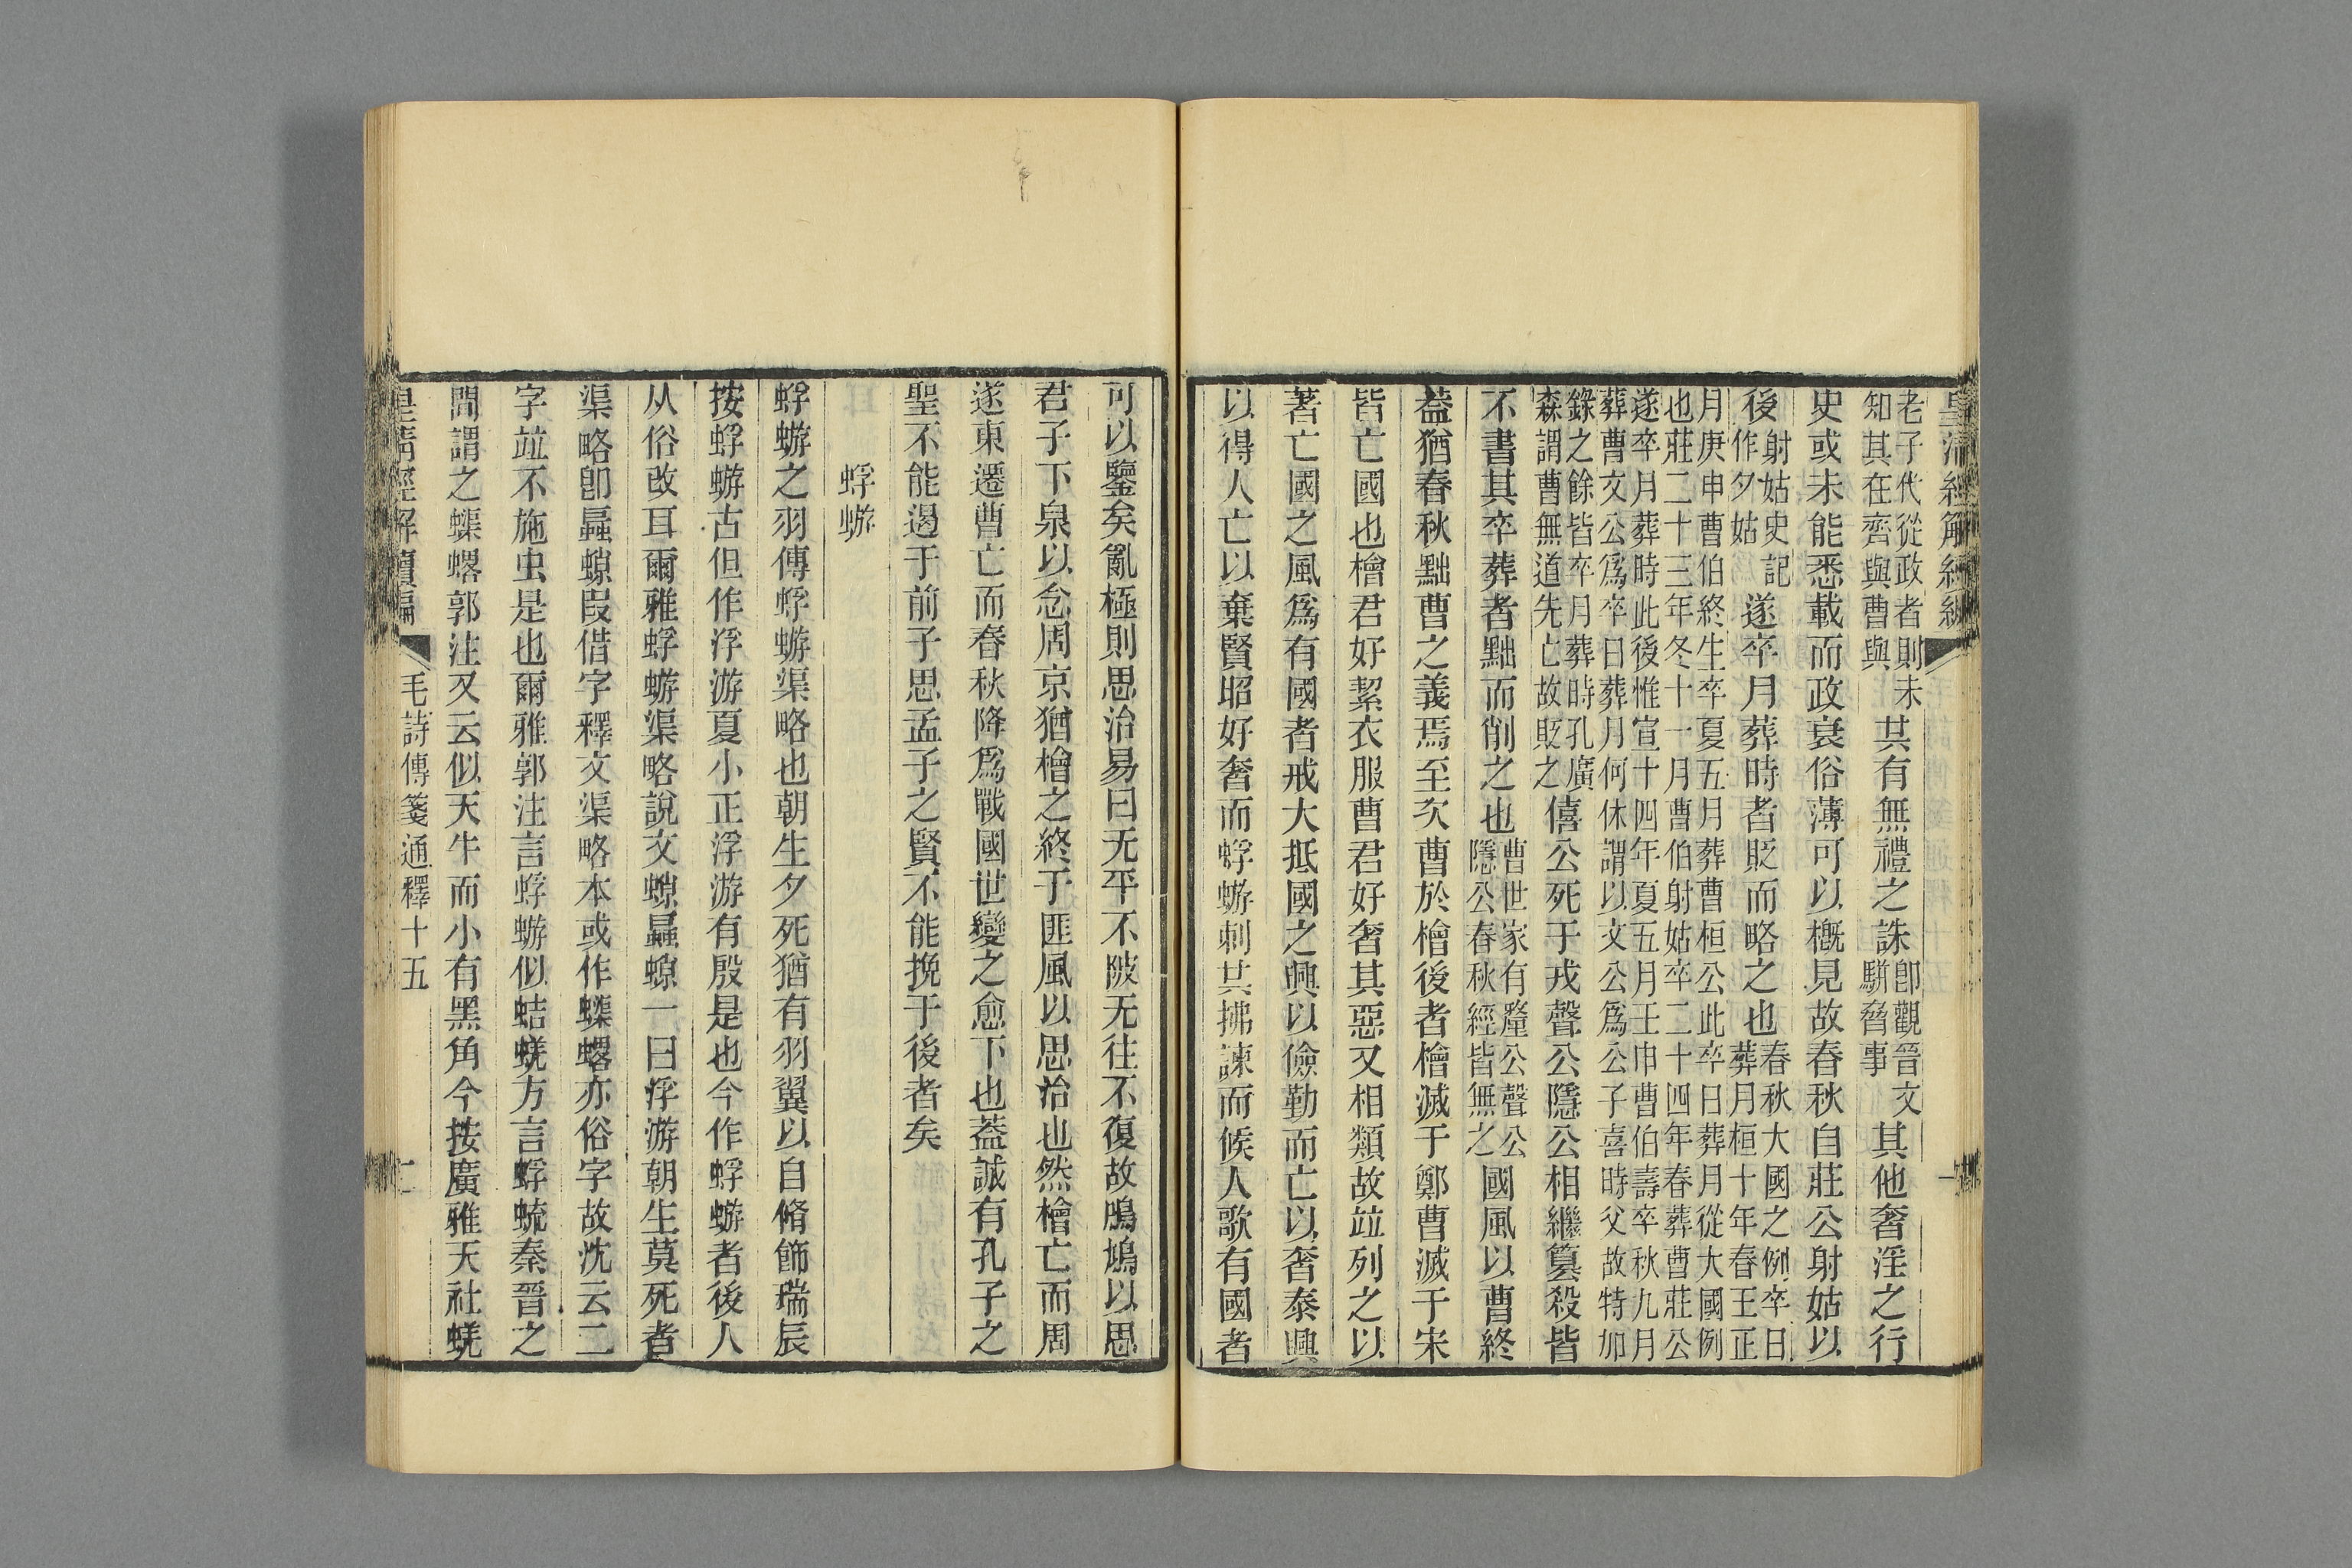 老子代從政者則未
知其在齊與曹與
其有無禮之誅
卽觀晉文
駢脅事
其他奢淫之行
史或未能悉載而政衰俗薄可以概見故春秋自莊公射姑以
後
射姑史記
作夕姑
遂卒月葬時者貶而略之也
春秋大國之例卒日
葬月桓十年春王正
月庚申曹伯終生卒夏五月葬曹桓公此卒日葬月從大國例
也莊二十三年冬十一月曹伯射姑卒二十四年春葬曹莊公
遂卒月葬時此後惟宣十四年夏五月壬申曹伯壽卒秋九月
葬曹文公爲卒日葬月何休謂以文公爲公子喜時父故特加
錄之餘皆卒月葬時孔廣
森謂曹無道先亡故貶之
僖公死于戎聲公隱公相繼簒殺皆
不書其卒葬者黜而削之也
曹世家有釐公聲公
隱公春秋經皆無之
國風以曹終
葢猶春秋黜曹之義焉至次曹於檜後者檜滅于鄭曹滅于宋
皆亡國也檜君好絜衣服曹君好奢其惡又相類故竝列之以
著亡國之風爲有國者戒大抵國之興以儉勤而亡以奢泰興
以得人亡以棄賢昭好奢而蜉蝣刺共拂諫而候人歌有國者
可以鑒矣亂極則思治易曰无平不陂无往不復故鳲鳩以思
君子下泉以念周京猶檜之終于匪風以思治也然檜亡而周
遂東遷曹亡而春秋降爲戰國世變之愈下也葢誠有孔子之
聖不能遏于前子思孟子之賢不能挽于後者矣
蜉蝣
蜉蝣之羽傳蜉蝣渠略也朝生夕死猶有羽翼以自脩飾瑞辰
按蜉蝣古但作浮游夏小正浮游有殷是也今作蜉蝣者後人
从俗改耳爾雅蜉蝣渠略說文螶蟁螶一曰浮游朝生莫死者
渠略卽蟁螶叚借字釋文渠略本或作蟝𧎾亦俗字故沈云二
字竝不施虫是也爾雅郭注言蜉蝣似蛣蜣方言蜉𧋘秦晉之
間謂之蟝𧎾郭注又云似天牛而小有黑角今按廣雅天社蜣
皇淸經解續編
毛詩傳箋通釋十五
二